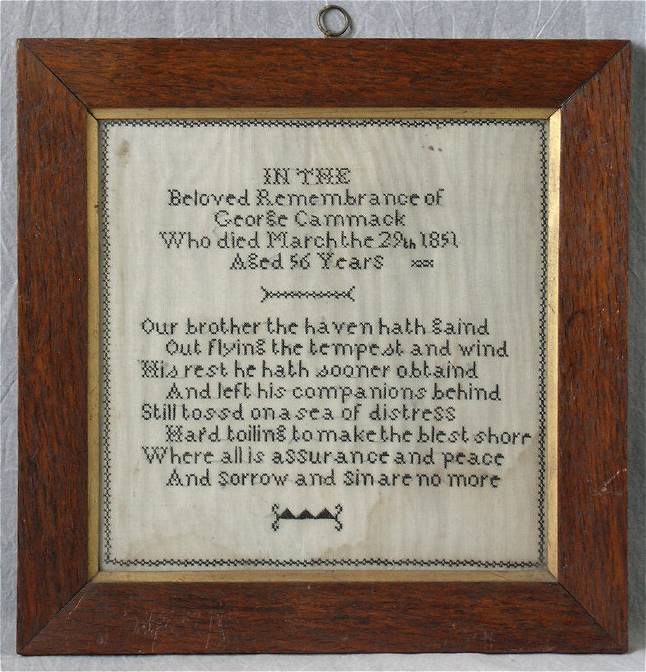 IN THE
Beloved Remembrance of
George Cammack
Who died March the 29th 1851
Aged 56 Years
Our brother the haven hath gaind
Out flying the tempest and wind
His rest he hath sooner obtaind
And left his companions behind
Still tossd on a sea of distress
Hard toiling to make the blest shore
Where all is assurance and peace
And sorrow and sin are no more